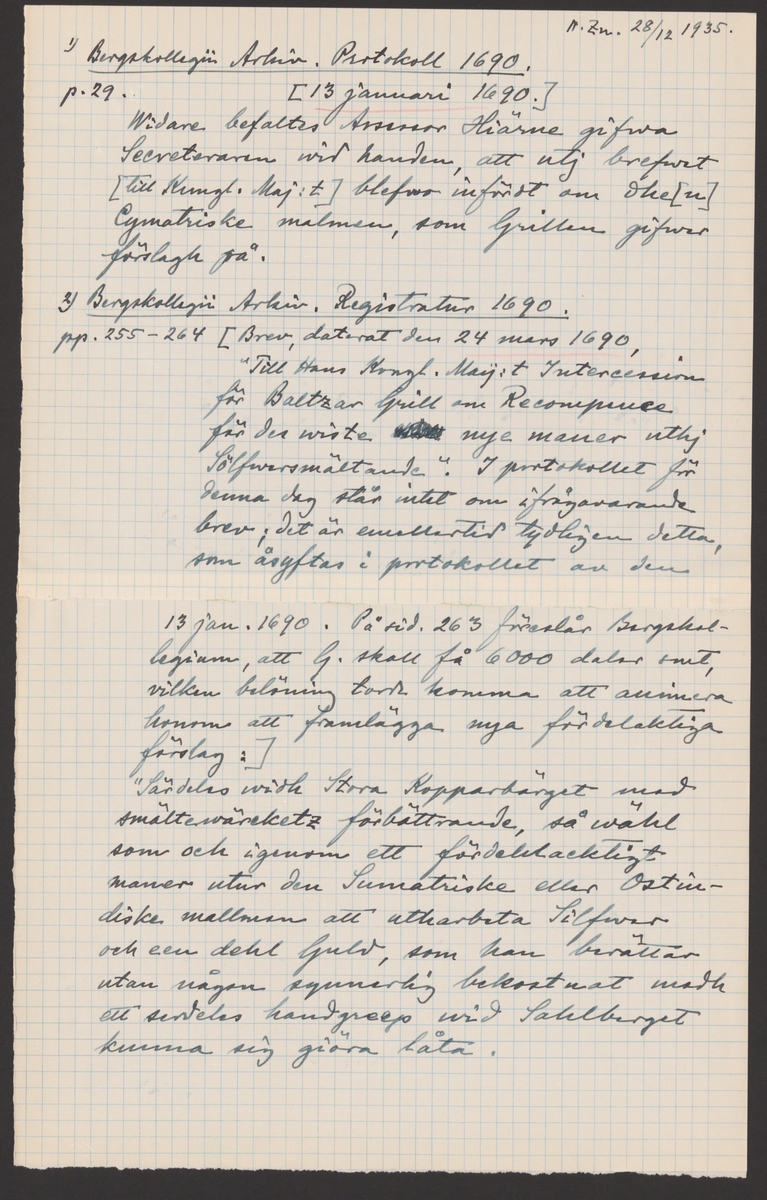 N. Zn. 28/12 1935.
1) Bergskollegii Arkiv. Protokoll 1690.
p. 29. [13 januari 1690.]
Widare befaltes Assessor Hiärne gifwa
Secreteraren wid handen, att utj brefwet
[till Kungl. Maj:t] blefwo infördt om dhe[n]
Cymatriske malmen, som Grillen gifwer
förslagh på.
2) Bergskollegii Arkiv. Registratur 1690.
pp. 255-264 [Brev, daterat den 24 mars 1690,
"Till Hans Kongl. Maij:t Intercession
för Baltzar Grill om Recompence
för des wiste nye maner uthj
Sölfwersmältande". I protokollet för
denna dag står intet om ifrågavarande
brev; det är emellertid tydligen detta,
som åsyftas i protokollet av den
13 jan. 1690. På sid. 263 föreslår Bergskol-
legium, att G. skall få 6000 daler smt,
vilken belöning torde komma att animera
honom att framlägga nya fördelaktiga
förslag:]
"Särdeles widh Stora Kopparbärget med
smälterwärcketz förbättrande, så wähl
som och igenom ett fördehlacktigt
maner utur den Sumatriske eller Ostin-
diske mallmen att utharbeta Silfwer
och een dehl Guld, som han berättar
utan någon synnerlig bekostnat medh
ett serdeles handgreep wid Sahlberget
kunna sig giöra låta.